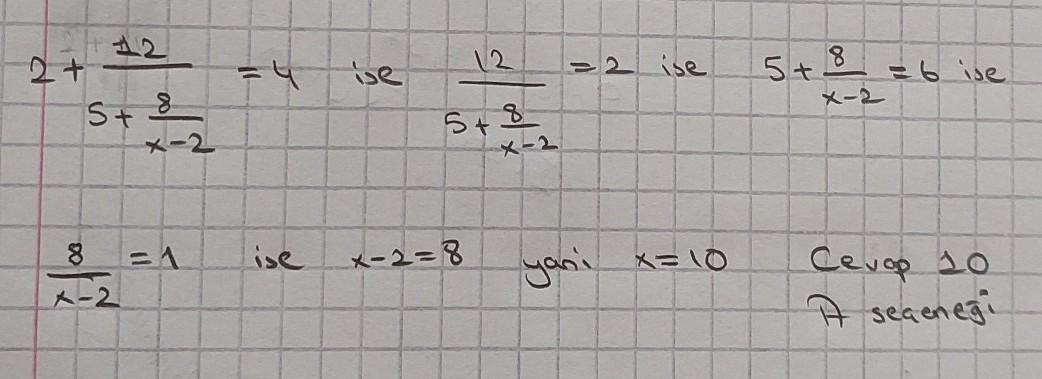 2 + 12 / (5 + 8/(x-2)) = 4 ise 12 / (5 + 8/(x-2)) = 2 ise 5 + 8/(x-2) = 6 ise
8/(x-2) = 1 ise x-2=8 yani x=10 Cevap 10
A seçeneği